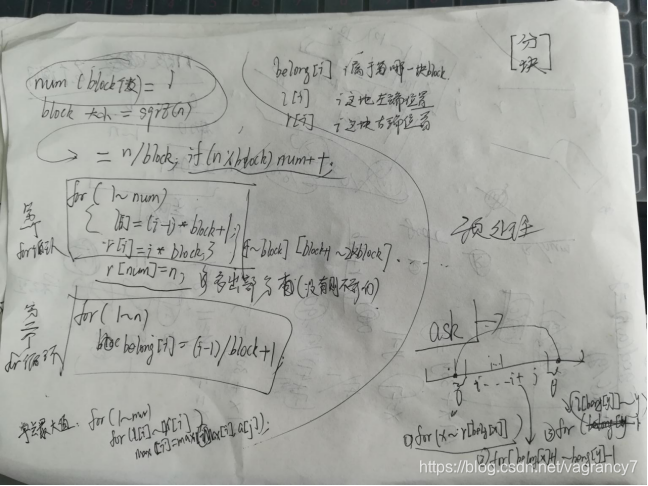 [分块]
num (block个数) = ↓
block 大小 = sqrt(n)
→ = n/block; if (n%block) num++;
belong[i] i属于第哪一块block
l[i] i这块左端位置
r[i] i这块右端位置
第一个for循环
for (1~num)
{ l[i]=(i-1)*block+1;
r[i]=i*block;}
[1~block] [block+1~2*block] ......
r[num]=n;
预处理
第二个for循环
for (1~n)
belong[i]=(i-1)/block+1;
最大值:
for (1~num)
for (l[i]~r[i])
max[i]=max(max[i],a[j]);
ask
x y
① for (x~r[belong[x]])
② for (belong[x]+1~belong[y]-1
③ for (l[belong[y]]~y)
https://blog.csdn.net/vagrancy7